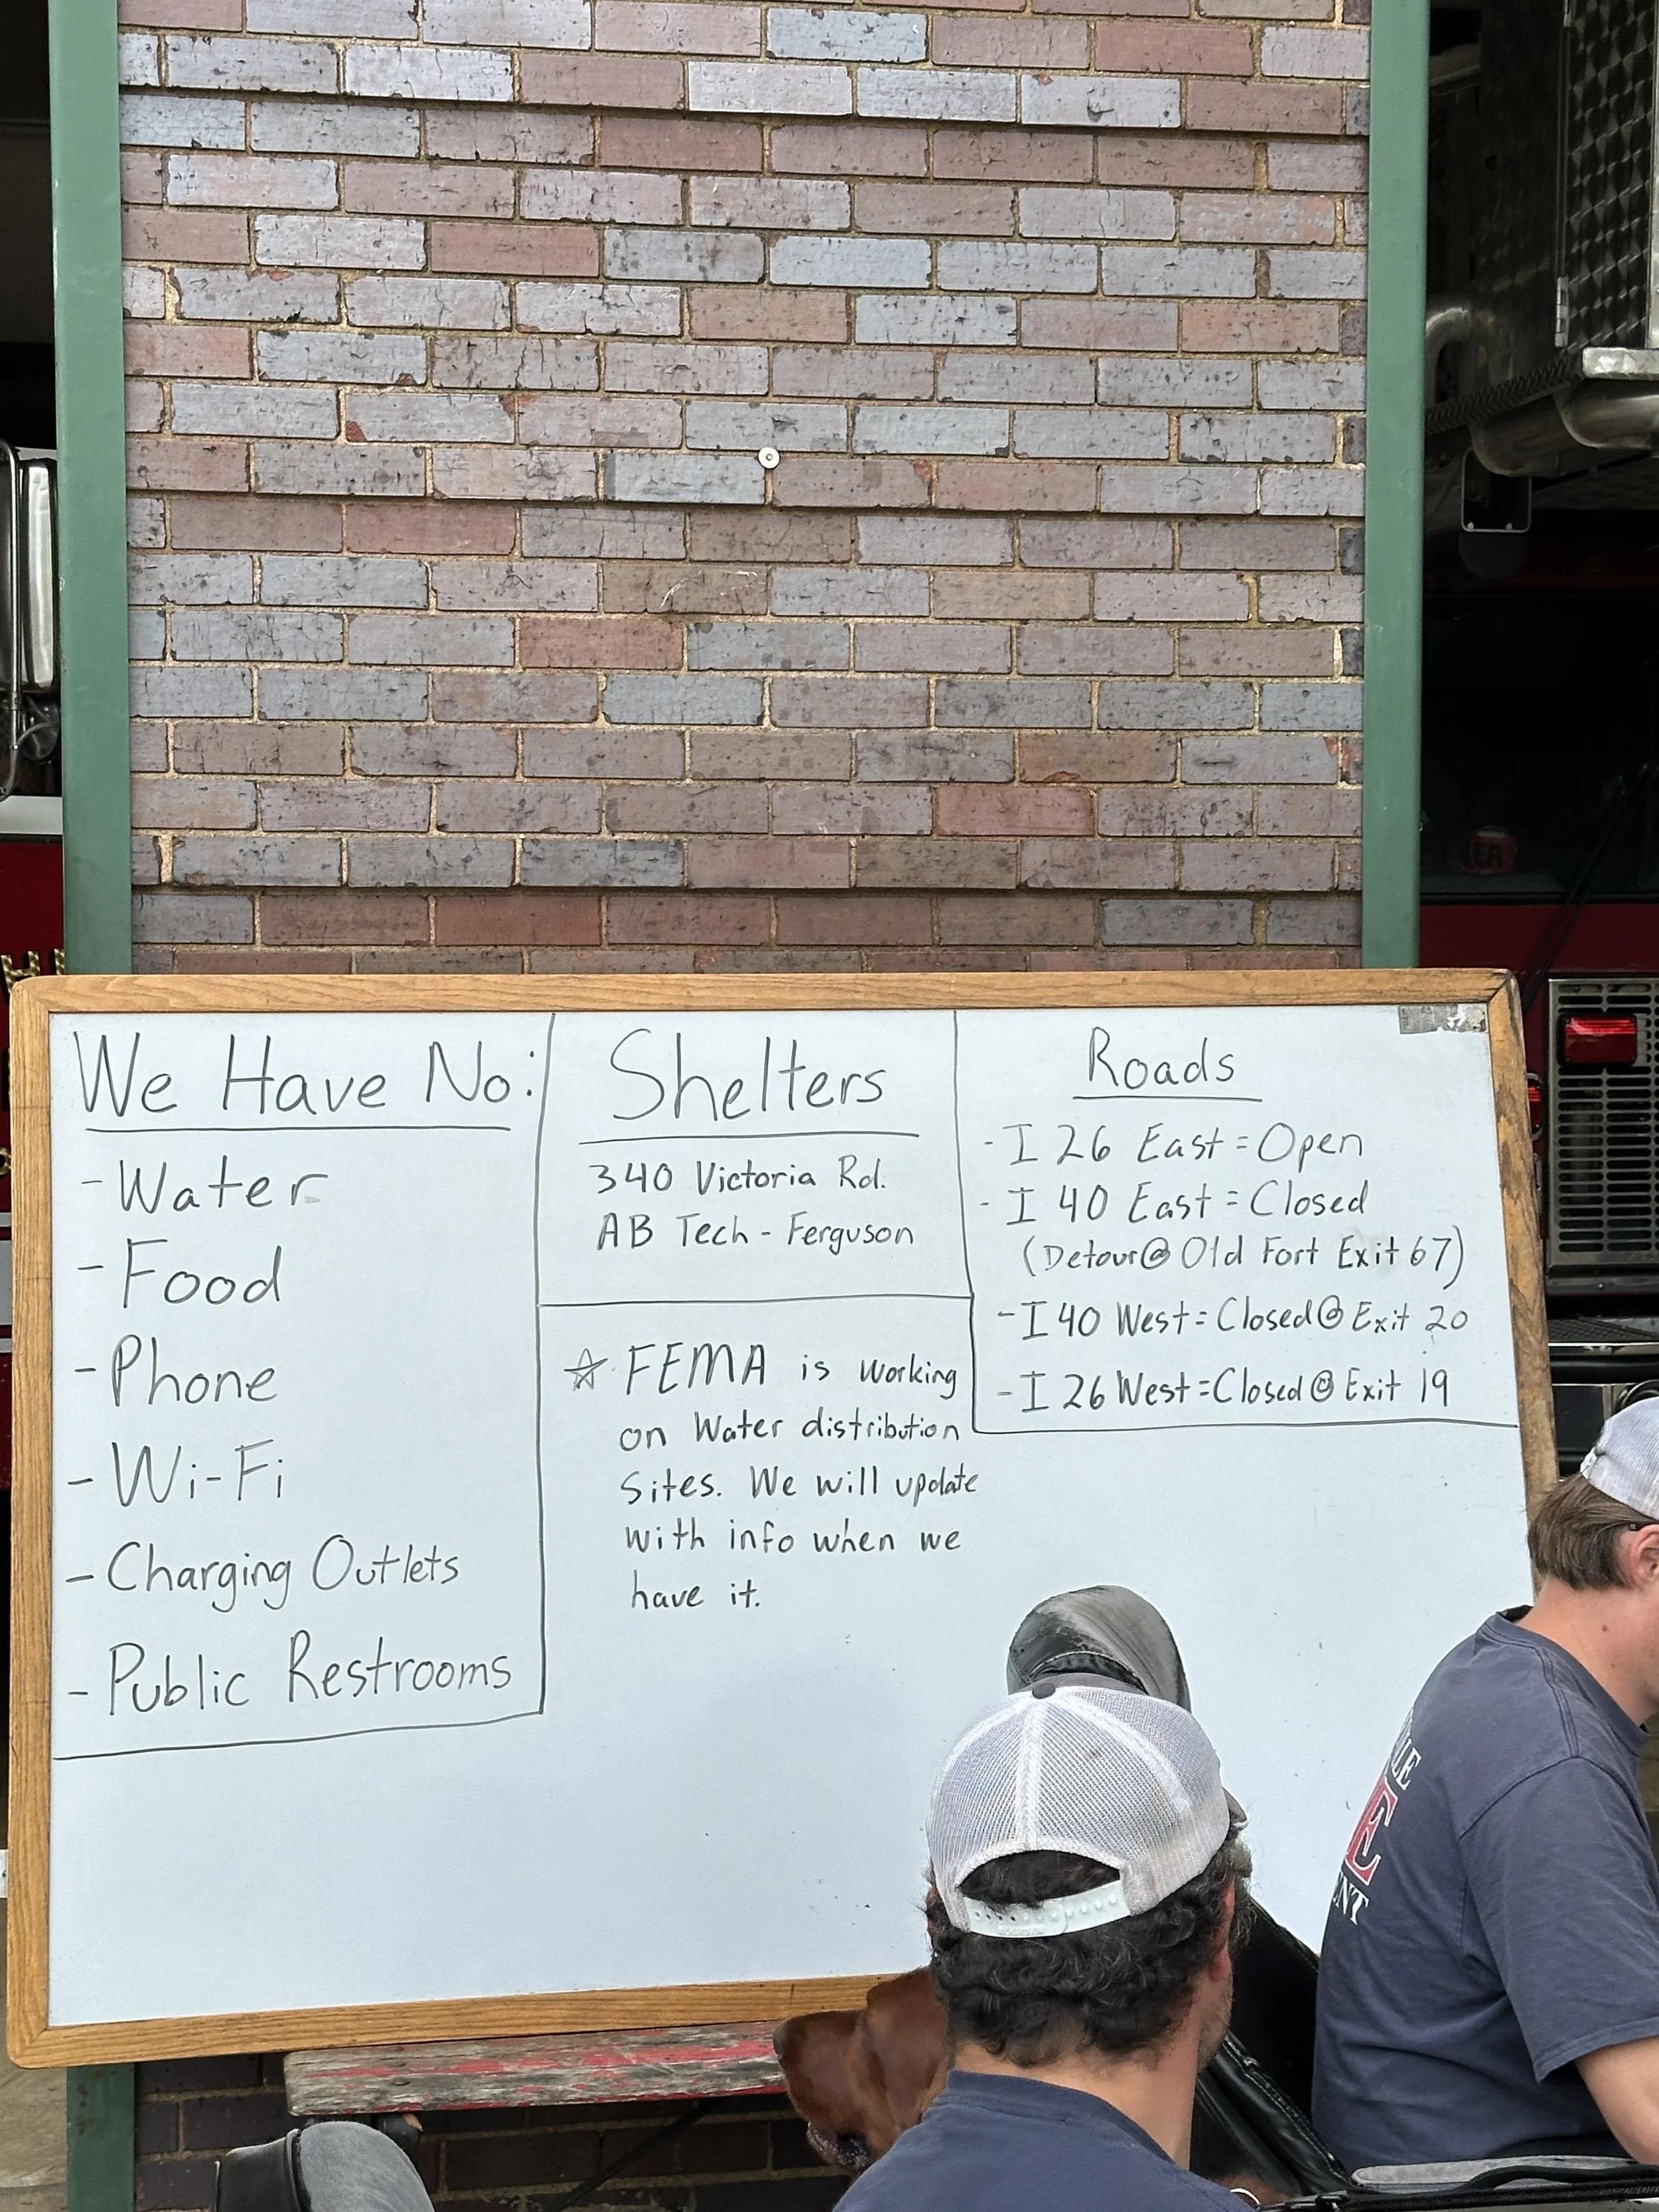 We Have No:
- Water
- Food
- Phone
- Wi-Fi
- Charging Outlets
- Public Restrooms
Shelters
340 Victoria Rd.
AB Tech - Ferguson
☆ FEMA is working
on Water distribution
Sites. We will update
with info when we
have it.
Roads
- I 26 East = Open
- I 40 East = Closed
(Detour@ Old Fort Exit 67)
- I 40 West = Closed @ Exit 20
- I 26 West = Closed @ Exit 19